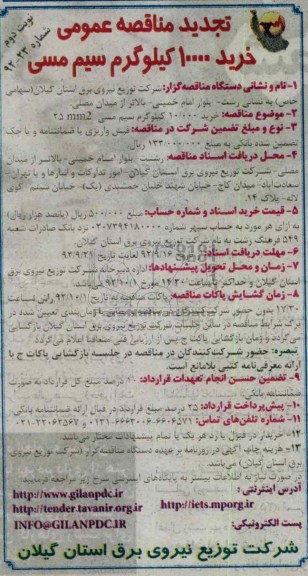 نوبت دوم
شماره ۲۳-۹۲
تجدید مناقصه عمومی
خرید ۱۰۰۰۰ کیلوگرم سیم مسی
۱-نام و نشانی دستگاه مناقصه‌گزار: شرکت توزیع نیروی برق استان گیلان(سهامی
خاص) به نشانی رشت- بلوار امام خمینی- بالاتر از میدان مصلی.
۲-موضوع مناقصه: خرید ۱۰/۰۰۰ کیلوگرم سیم مسی ۲۵ mm2
۳- نوع و مبلغ تضمین شرکت در مناقصه: فیش واریزی یا ضمانتنامه و یا چک
تضمین شده بانکی به مبلغ ۱۳۳/۰۰۰/۰۰۰ ریال.
۴- محل دریافت اسناد مناقصه: رشت- بلوار امام خمینی- بالاتر از میدان
مصلی- شرکت توزیع نیروی برق استان گیلان- امور تدارکات و انبارها و یا تهران-
سعادت‌آباد- میدان کاج- خیابان شهید حسان جمشیدی (یک)- خیابان سیتم- کوی
لاله- پلاک ۱۴.
۵- قیمت خرید اسناد و شماره حساب: مبلغ ۵۰۰/۰۰۰ ریال (پانصد هزار ریال)
به ازای هر مورد به حساب سپهر شماره نزد بانک صادرات شعبه
۵۴۹ فرهنگ رشت به نام شرکت توزیع نیروی برق استان گیلان.
۶- مهلت دریافت اسناد: ۹۲/۹/۱۶ لغایت تاریخ ۹۲/۹/۲۱
۷- زمان و محل تحویل پیشنهادها: اداره دبیرخانه شرکت توزیع نیروی برق
استان گیلان و حداکثر تا ساعت ۱۴/۳۰ مورخ ۹۲/۱۰/۱ می‌باشد.
۸- زمان گشایش پاکات مناقصه: پاکات مناقصه به تاریخ ۹۲/۱۰/۱ راس ساعت
برگ شرایط مناقصه در سالن جلسات شرکت توزیع نیروی برق استان گیلان بازگشایی
می‌گردد و زمان بازگشایی پاکت ج پس از ارزیابی فنی متعاقبا اعلام می‌گردد.
تبصره: حضور شرکت‌کنندگان در مناقصه در جلسه بازگشایی پاکات ج با
ارائه معرفی‌نامه کتبی بلامانع است.
۹- تضمین حسن انجام تعهدات قرارداد: ۱۰ درصد مبلغ کل قرارداد به صورت
ضمانتنامه بانکی.
۱۰- پیش‌پرداخت قرارداد: ۲۵ درصد مبلغ قرارداد در قبال ارائه ضمانتنامه بانکی.
۱۱- شماره تلفن‌های تماس:
۱۲- خریدار در قبول یا رد هر یک یا تمام پیشنهادات مختار می‌باشد.
۱۳- هزینه چاپ آگهی در روزنامه بر عهده دستگاه مناقصه گزار (شرکت توزیع نیروی
برق استان گیلان) می‌باشد.
در صورت نیاز به اطلاعات بیشتر به پایگاه‌های اینترنتی شرح زیر مراجعه فرمائید.
آدرس اینترنتی: http://www.gilanpdc.ir
http://iets.mporg.ir http://tender.tavanir.org.ir
پست الکترونیکی: INFO@GILANPDC.IR
شرکت توزیع نیروی برق استان گیلان